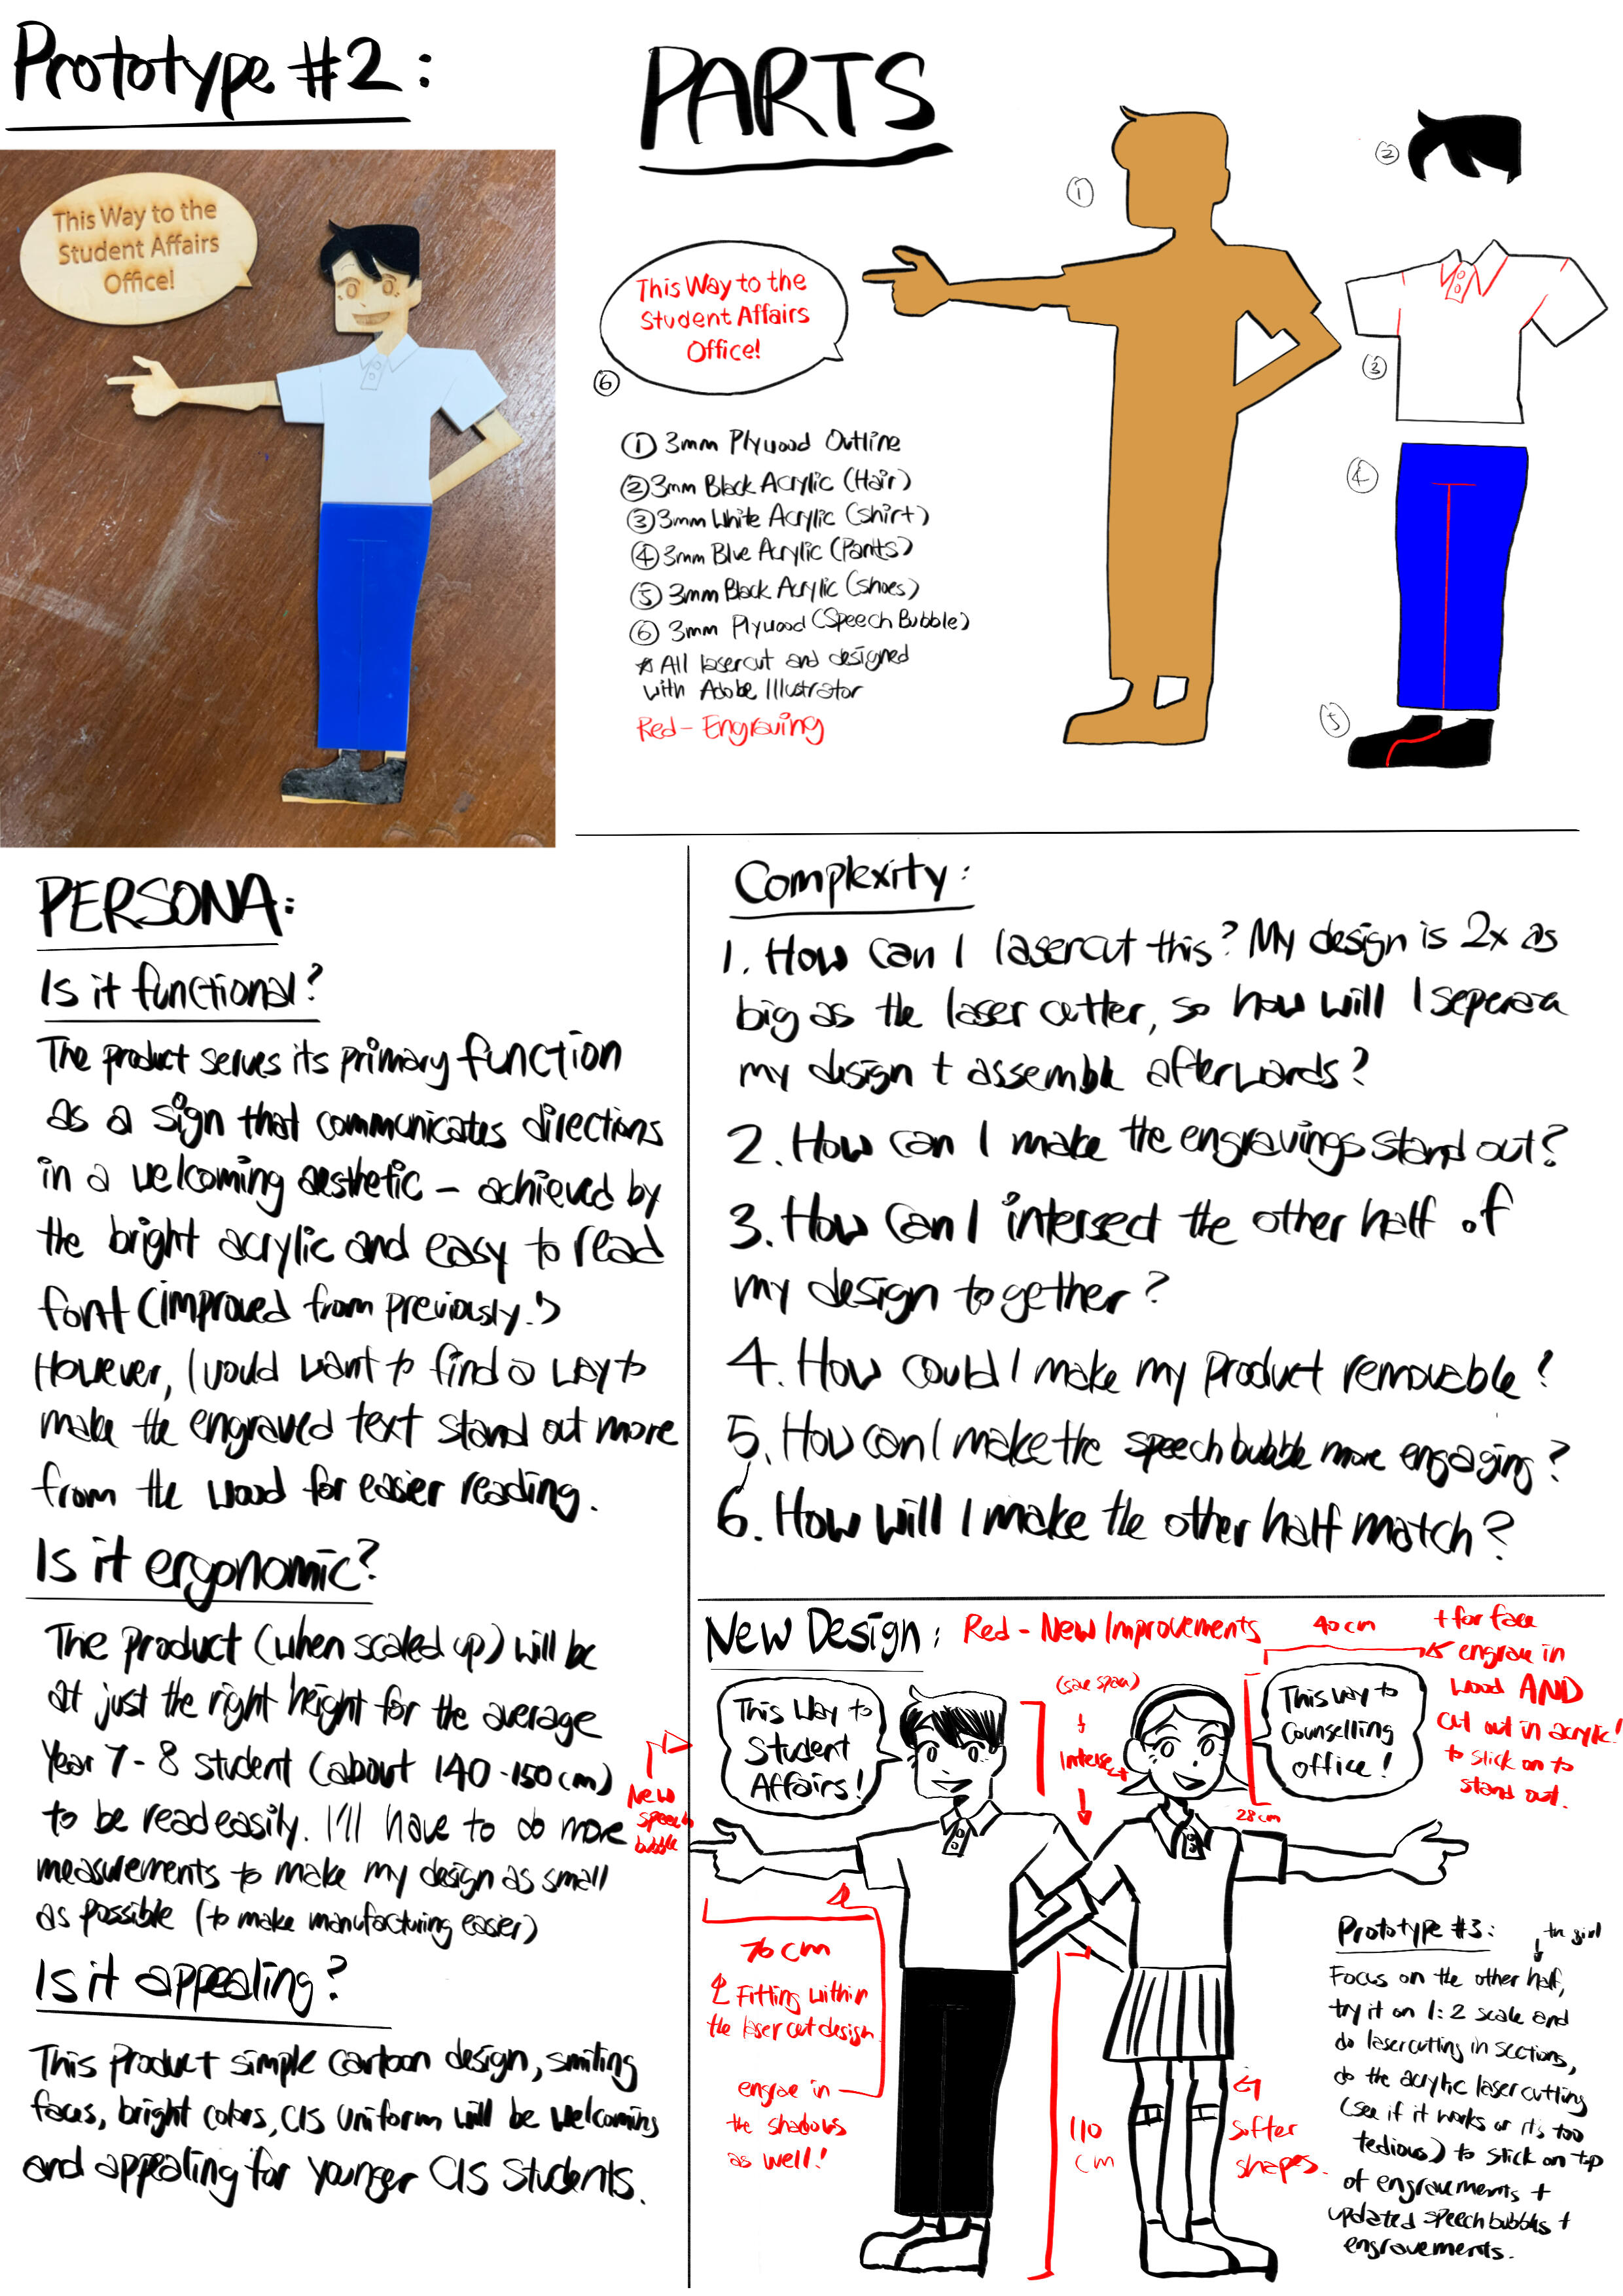 Prototype #2:
This Way to the
Student Affairs
Office!
PARTS
①
②
This Way to the
Student Affairs
Office!
⑥
③
④
⑤
① 3mm Plywood Outline
② 3mm Black Acrylic (Hair)
③ 3mm White Acrylic (shirt)
④ 3mm Blue Acrylic (Pants)
⑤ 3mm Black Acrylic (shoes)
⑥ 3mm Plywood (Speech Bubble)
* All lasercut and designed
with Adobe Illustrator
Red - Engraving
PERSONA:
Is it functional?
The product serves its primary function
as a sign that communicates directions
in a welcoming aesthetic - achieved by
the bright acrylic and easy to read
font (improved from previously.)
However, I would want to find a way to
make the engraved text stand out more
from the wood for easier reading.
Is it ergonomic?
The product (when scaled up) will be
at just the right height for the average
Year 7-8 student (about 140-150cm)
to be read easily. I'll have to do more
measurements to make my design as small
as possible (to make manufacturing easier)
Is it appealing?
This product simple cartoon design, smiling
faces, bright colors, CIS uniform will be welcoming
and appealing for younger CIS students.
Complexity:
1. How can I lasercut this? My design is 2x as
big as the laser cutter, so how will I
my design + assemble afterwards?
2. How can I make the engravings stand out?
3. How can I intersect the other half of
my design together?
4. How could I make my product removable?
5. How can I make the speech bubble more engaging?
6. How will I make the other half match?
New Design:
Red - New Improvements
40cm
+ for face
engrave in
wood AND
cut out in acrylic!
to stick on to
stand out.
This Way to
Student
Affairs!
(save space)
↓
Intersect
This way to
Counselling
office!
28cm
New
speech
bubble
70cm
Fitting within
the laser cut design
engrave in
the shadows
as well!
110
cm
softer
shapes.
Prototype #3:
the girl
Focus on the other half,
try it on 1:2 scale and
do lasercutting in sections,
do the acrylic lasercutting
(see if it works or it's too
tedious) to stick on top
of engravements +
updated speech bubbles +
engravements.